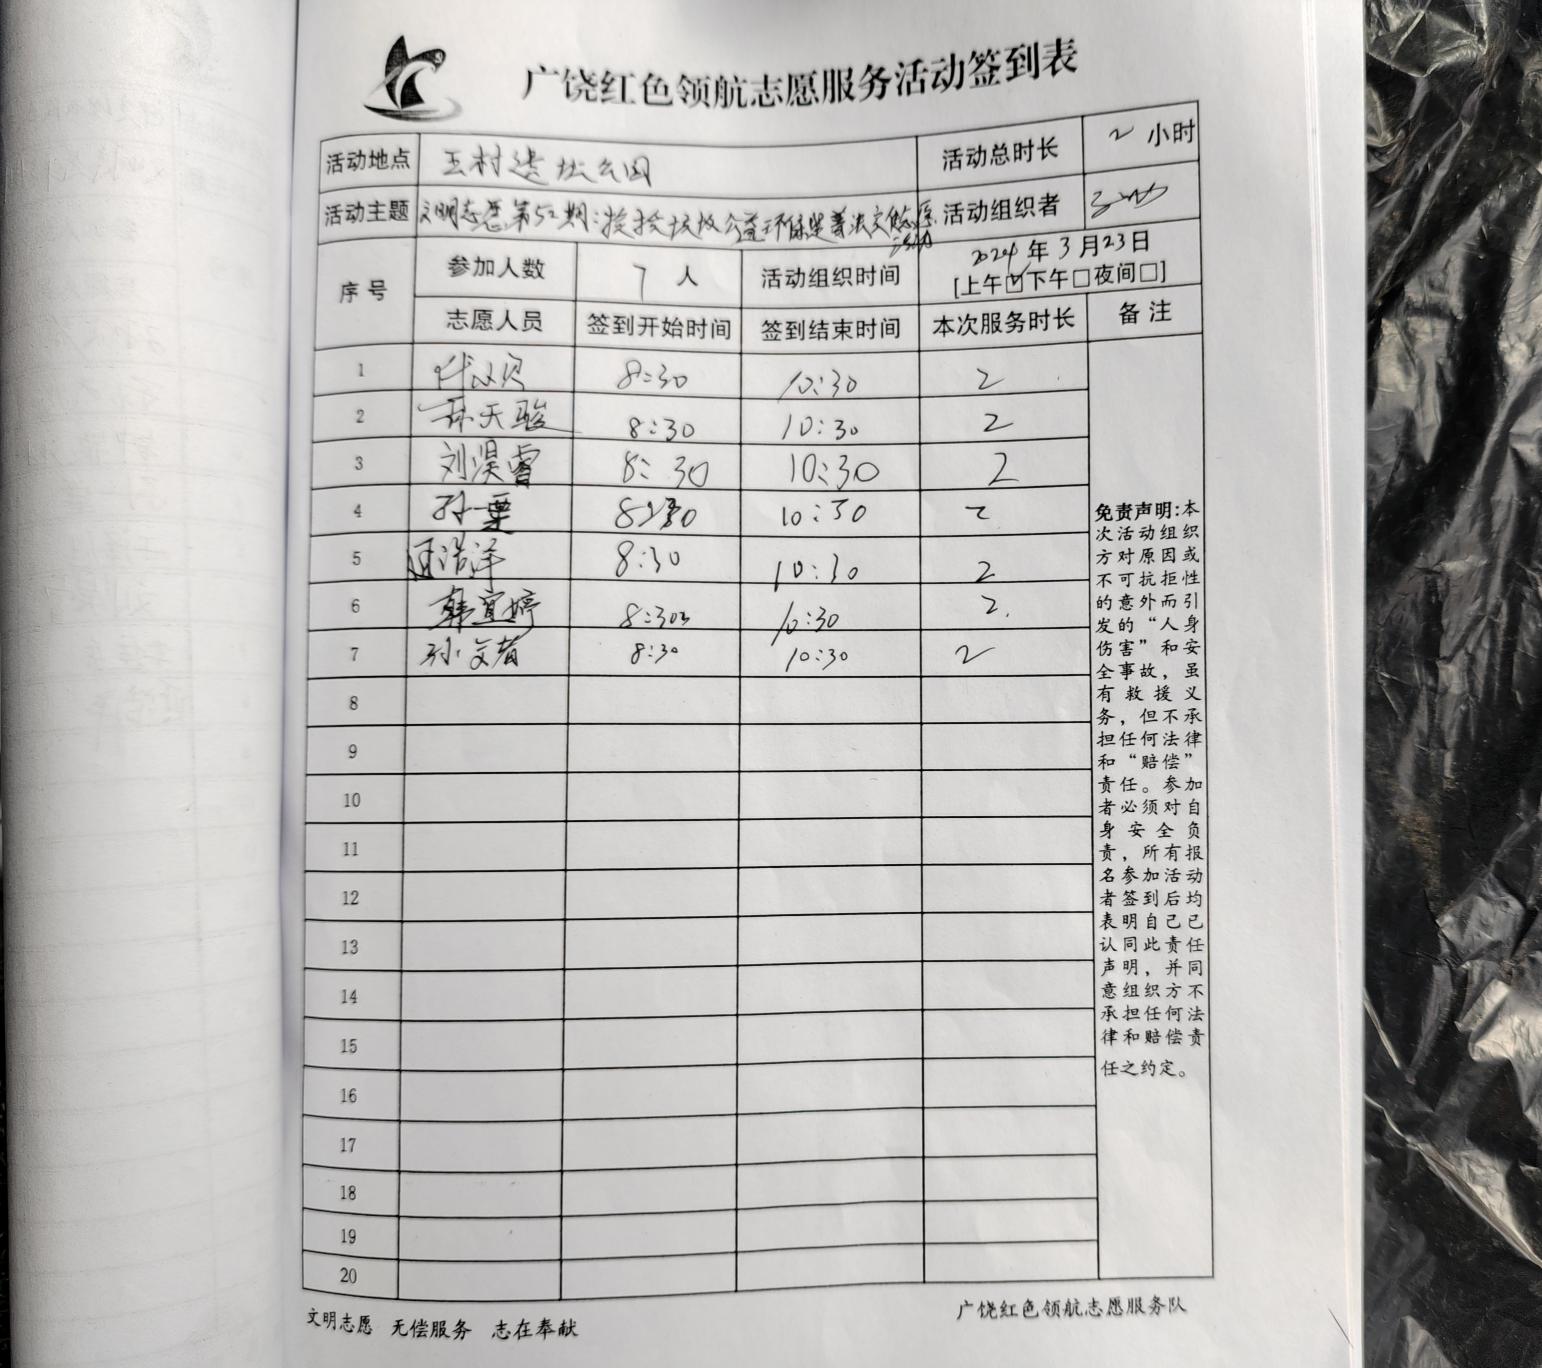 广饶红色领航志愿服务活动签到表
活动地点 王村遗址公园 活动总时长 2 小时
活动主题 文明志愿第52期:捡拾垃圾公益环保 普法文明 活动组织者
序号 参加人数 7 人 活动组织时间 2024年3月23日
[上午☑下午□夜间□]
志愿人员 签到开始时间 签到结束时间 本次服务时长 备注
1 8:30 10:30 2
2 天骏 8:30 10:30 2
3 刘淏睿 8:30 10:30 2
4 孙一粟 8:30 10:30 2
5 浩洋 8:30 10:30 2
6 韩宜婷 8:30 10:30 2
7 孙文 8:30 10:30 2
8
9
10
11
12
13
14
15
16
17
18
19
20
免责声明:本
次活动组织
方对原因或
不可抗拒性
的意外而引
发的“人身
伤害”和安
全事故，虽
有救援义
务，但不承
担任何法律
和“赔偿”
责任。参加
者必须对自
身安全负
责，所有报
名参加活动
者签到后均
表明自己已
认同此责任
声明，并同
意组织方不
承担任何法
律和赔偿责
任之约定。
文明志愿 无偿服务 志在奉献
广饶红色领航志愿服务队